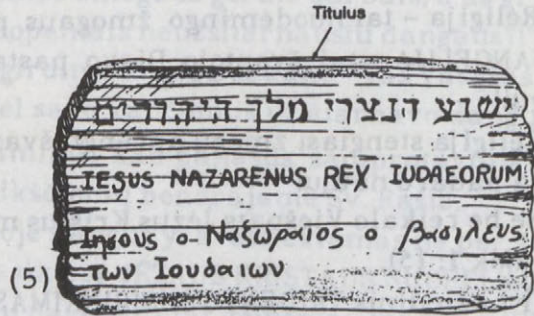 Titulus
ישוע הנצרי מלך היהודים
IESUS NAZARENUS REX IUDAEORUM
Ιησους ο Ναξωραιος ο βασιλευς
(5) των Ιουδαιων